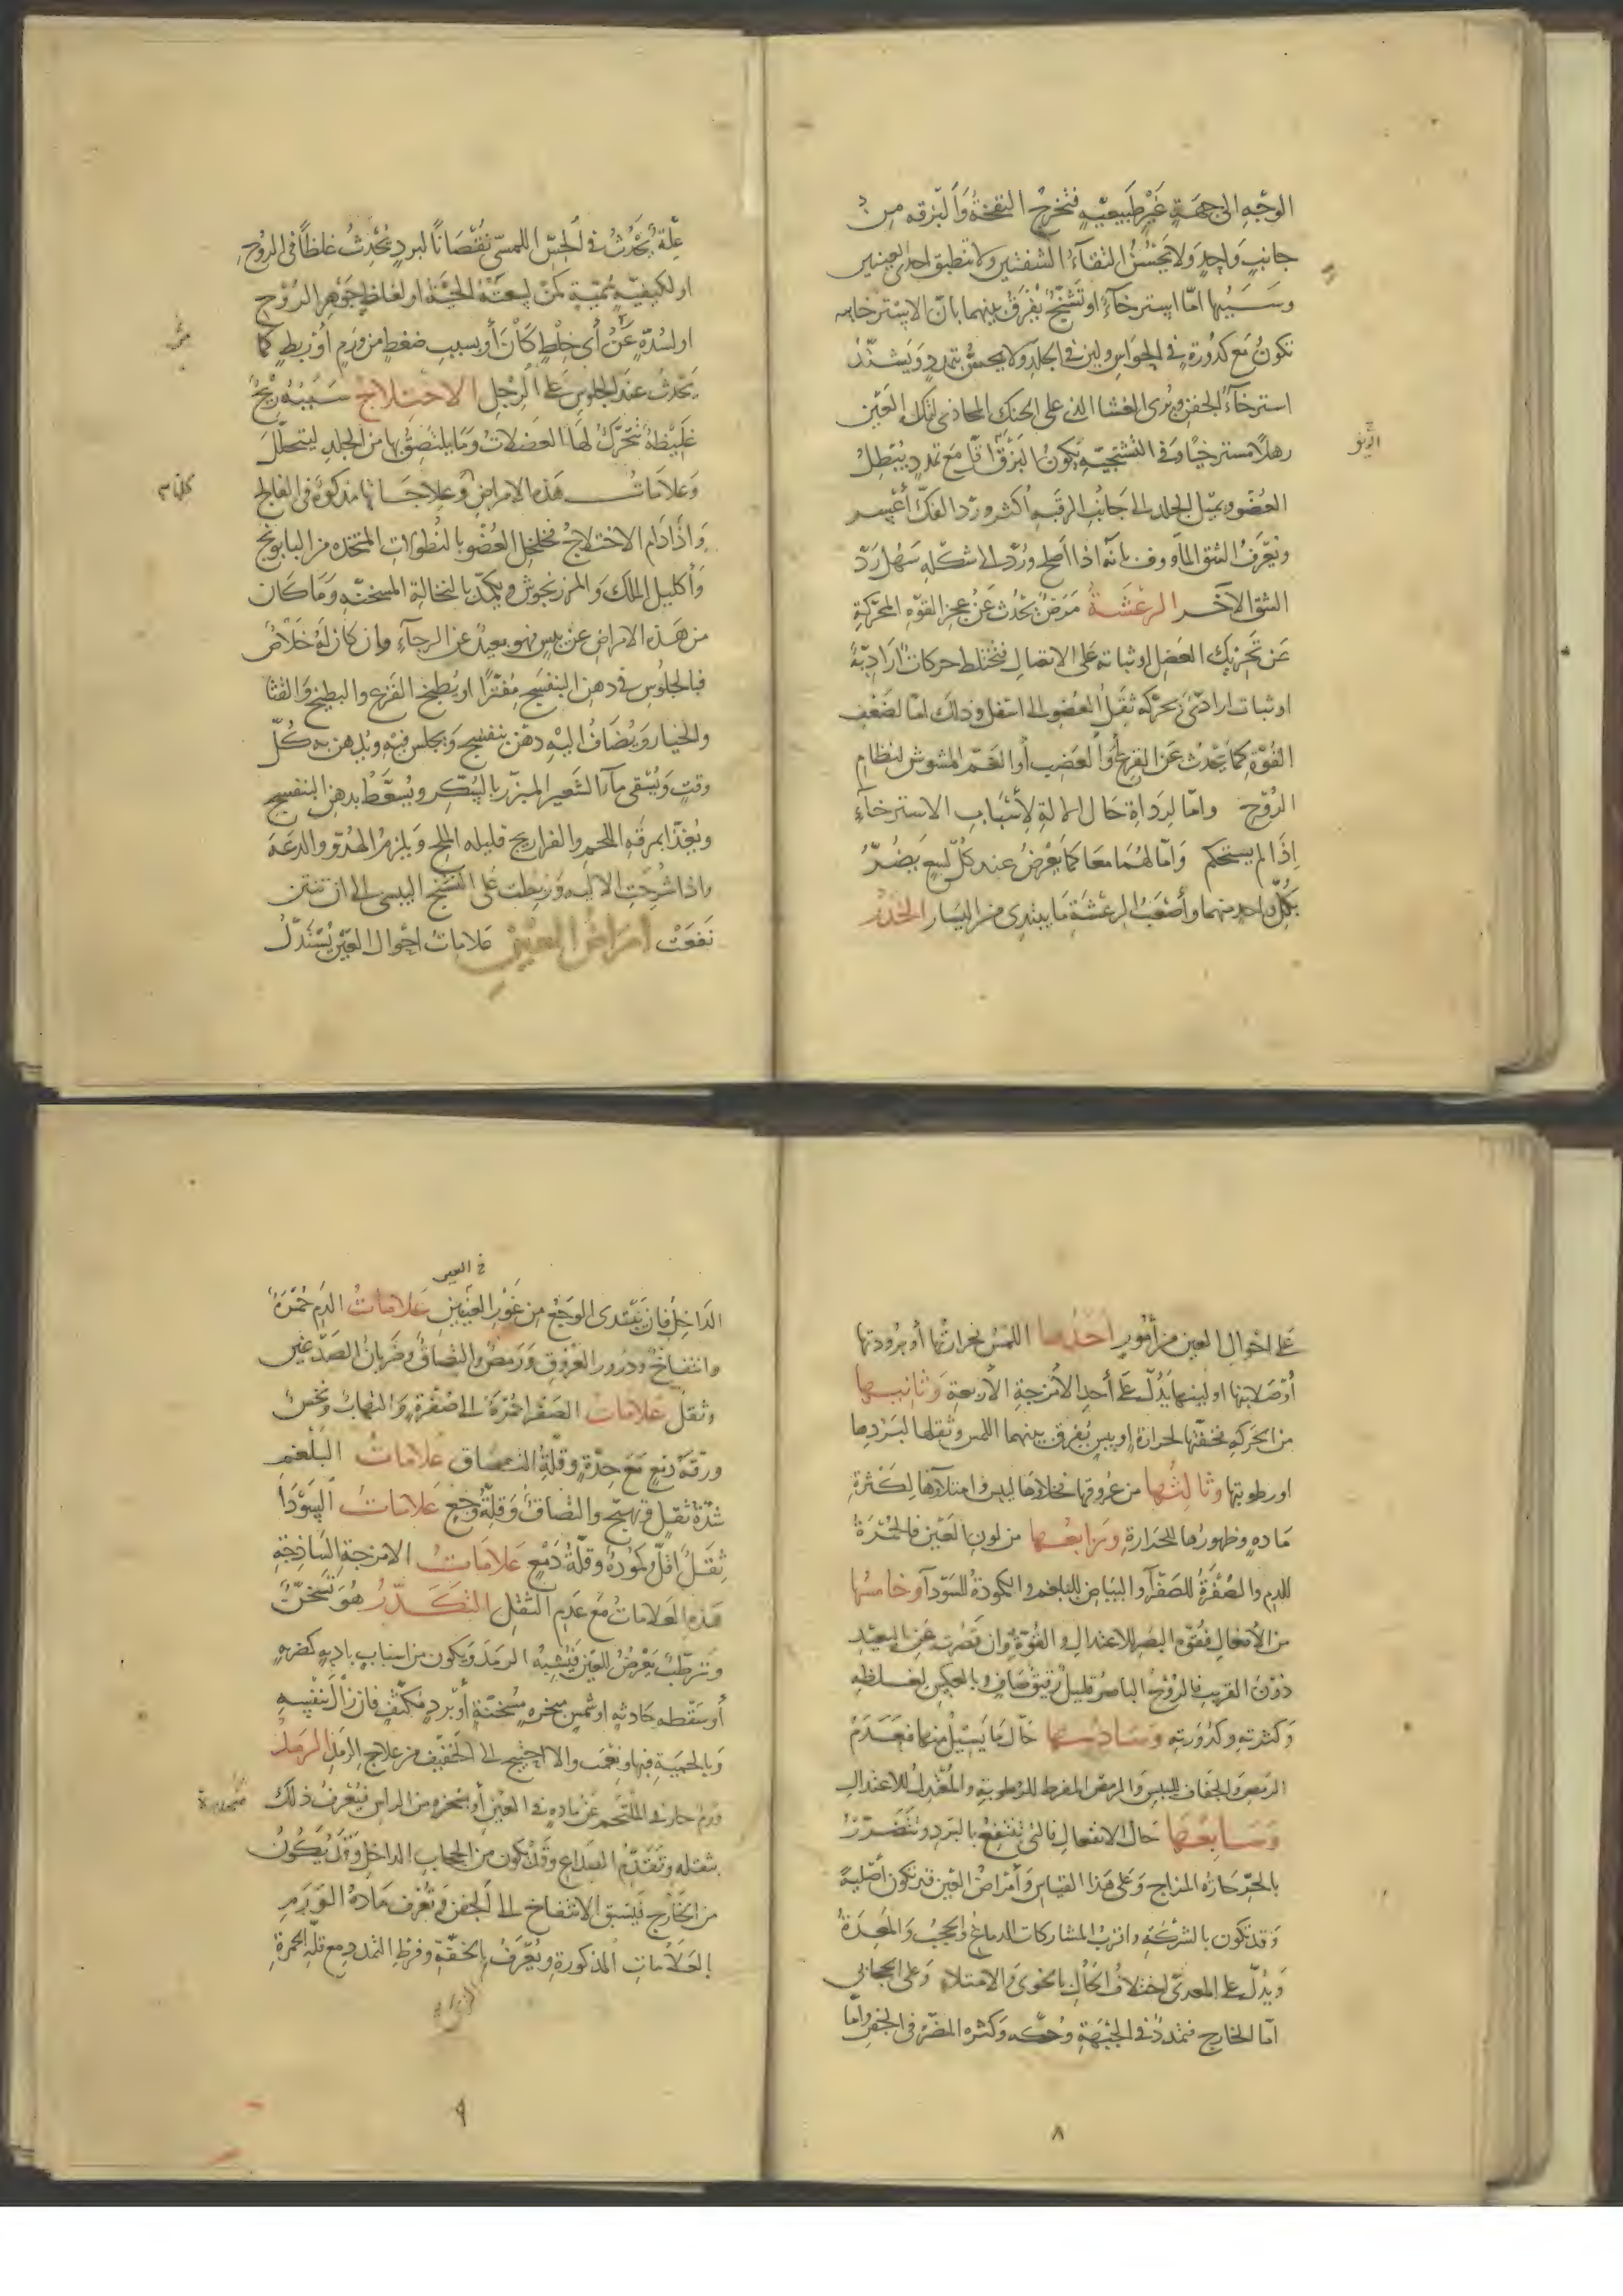 الوجه الى جهة غير طبيعية فتخرج النفخة والبزقه من
جانب واحد ولا يحسن التقاء الشفتين ولا تنطبق احدى العينين
وسببها امّا استرخآء او تشنّج يفرق بينهما بانّ الاسترخايه
تكون مع كدورة في الحواس ولين في الجلد ولا يحسّ بتمدد ويشتدّ
استرخآء الجفن ويرى الغشا الذى على الحنك المحاذى لتلك العين
رهلا مسترخيا وفى التشنجيّه يكون البزق مع تمدد يبطل
العضو ويميل الجلد الى جانب الرقبه أكثر وردّ الفكّ أعسر
ويعرف الشق المأووف بأنه اذا اصلح وردّ الى شكله سهل ردّ
الشق الآخر الرعشة مرض يحدث عن عجز القوّه المحرّكة
عن تحريك العضل او ثباته على الاتصال فتختلط حركات اراديّة
او ثبات ارادىّ بحركه ثقل العضو الى اسفل وذلك امّا لضعف
القوّة كما يحدث عن الفرح أو الغضب أو الغم المشوش لنظام
الروح وامّا لرداة حال الالة لأسباب الاسترخآء
إذا لم يستحكم وامّا لهما معا كما يعرض عند كلّ لسع يضرّ
بكلّ واحد منهما وأصعب الرعشة ما يبتدى من اليسار الخدر
علّة يحدث في الحسّ اللمسىّ نقصانا لبرد يحدث غلظا في الروح
او لكيفيّه سمّيّة كمن لسعته الحيّة او لغلظ جوهر الروح
او لسدّه عن أى خلط كان أو بسبب ضغط من ورم أو ربط كما
يحدث عند الجلوس على الرجل الاختلاج سببه ريح
غليظة تتحرّك لها العضلات وما يلتصق بها من الجلد ليتحلّل
وعلامات هذه الامراض وعلاجاتها مذكورة في الفالج
واذا دام الاختلاج فخلخل العضو بالنطولات المتخذه من البابونج
وأكليل الملك والمرزنجوش ويكمّد بالنخالة المسخنه وما كان
من هذه الامراض عن يبس فهو بعيد عن الرجآء وان كان له خلاص
فبالجلوس في دهن البنفسج مفترا او يطبخ القرع والبطيخ والقثا
والخيار ويضاف اليه دهن بنفسج ويجلس فيه ويدهن به كلّ
وقت ويسقى مآء الشعير المبزّر بالسكر ويسعّط بدهن البنفسج
ويغذّا بمرقه اللحم والفراريج قليله الملح ويلزم الهدوّ والدعة
واذا شرحت الاليه وربطت على التشنج اليبسى الى ان تنتن
نفعت أمراض العين علامات احوال العين يستدلّ
على احوال العين من أمور احدها اللمس بحرارتها أو برودتها
أو صلابتها او لينها يدلّ على أحد الأمزجة الأربعة وثانيها
من الحركه فخفّتها لحرارة او يبس يفرق بينهما اللمس وثقلها لبردها
او رطوبتها وثالثها من عروقها فخلاؤها ليبس وامتلاؤها لكثرة
ماده وظهورها للحرارة ورابعها من لون العين فالحمرة
للدم والصفرة للصفرآ والبياض للبلغم والكمودة للسودآ وخامسها
من الأفعال فقوّه البصر للاعتدال والقوّة وان قصرت عن البعيد
دون القريب فالروح الباصر قليل رقيق صاف وبالعكس لغلظه
وكثرته وكدورته وسادسها حال ما يسيل منها فعدم
الرمص والجفاف لليبس والرمص المفرط للرطوبة والمعتدل للاعتدال
وسابعها حال الانفعال فالتى تنتفع بالبرد وتتضرّر
بالحرّ حارة المزاج وعلى هذا القياس وأمراض العين قد تكون أصليّة
وقد تكون بالشركة واقرب المشاركات الدماغ والحجب والمعدة
ويدلّ على المعدىّ اختلاف الحال بالخوى والامتلاء وعلى الحجابى
امّا الخارج فتمدد في الجبهة وحكه وكثره المضرّة في الجفن وامّا
٨
في العين
الداخل فان يبتدى الوجع من غور العينين علامات الدم حمرة
وانتفاخ ودرور العروق ورمص والتصاق وضربان الصدغين
وثقل علامات الصفرا حمرة الى صفرة والتهاب ونخس
ورقّة دمع مع حدّة وقلّة التصاق علامات البلغم
شدّة ثقل وتهيّج والتصاق وقلّة وجع علامات السودا
ثقل اقلّ وكمودة وقلّة دمع علامات الامزجة الساذجة
هذه العلامات مع عدم الثقل التكدّر هو تسخّن
وترطّب يعرض للعين فيشبه الرمد ويكون من اسباب باديه كضربه
أو سقطه حادثه او شمس مبخره مسخنة أو برد مكثف فان زال بنفسه
وبالحميه فبها ونعمت والا احتيج الى الخفيف من علاج الرمد الرمد
ورم حار في الملتحم عن ماده في العين أو منحدره من الراس فيعرف ذلك
بثقله وتقدّم الصداع وقد يكون من الحجاب الداخل وقد يكون
من الخارج فيسبق الانتفاخ الى الجفن وتعرف مادة الورم
بالعلامات المذكورة ويعرف بالخفّة وفرط التمدد مع قلّه الحمرة
٩